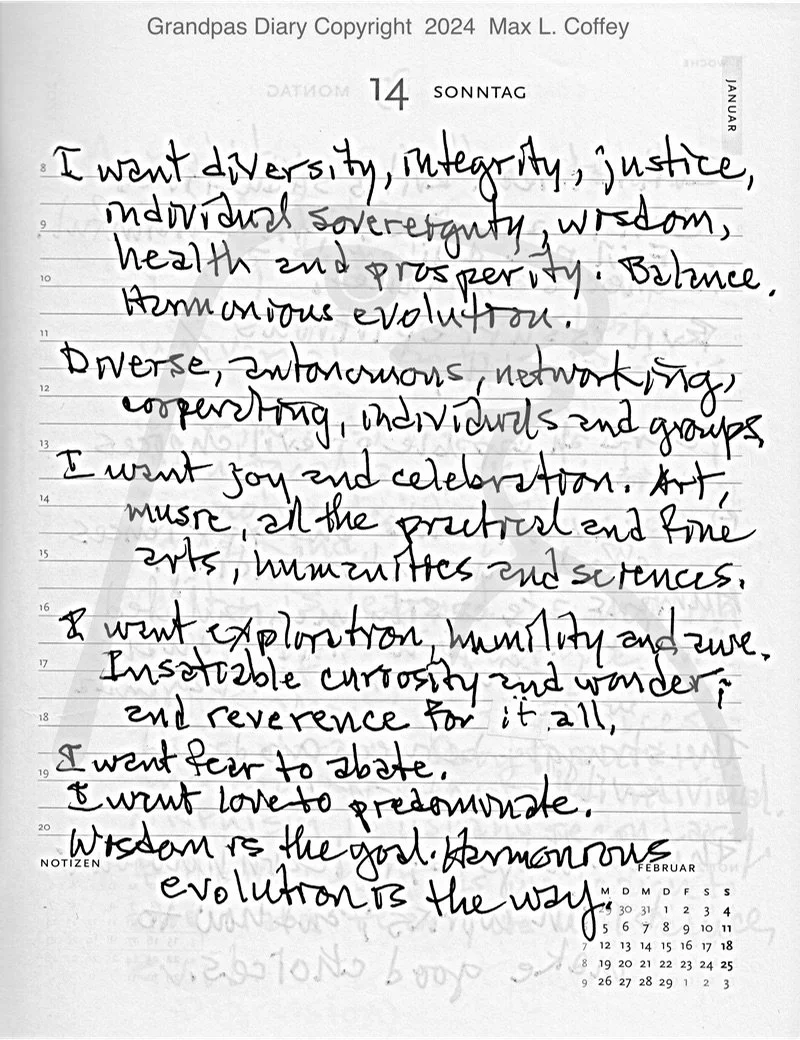 Grandpas Diary Copyright 2024 Max L. Coffey
WOCHE
MONTAG
14 SONNTAG
JANUAR
8 I want diversity, integrity, justice,
9 individual sovereignty, wisdom,
10 health and prosperity. Balance.
Harmonious evolution.
11
12 Diverse, autonomous, networking,
cooperating, individuals and groups,
13
14 I want joy and celebration. Art,
music, all the practical and fine
15 arts, humanities and sciences.
16 I want exploration, humility and awe.
17 Insatiable curiosity and wonder;
18 and reverence for it all,
19 I want fear to abate.
I want love to predominate.
20 Wisdom is the goal. Harmonious
evolution is the way.
NOTIZEN
FEBRUAR
M D M D F S S
29 30 31 1 2 3 4
5 6 7 8 9 10 11
7 12 13 14 15 16 17 18
8 19 20 21 22 23 24 25
9 26 27 28 29 1 2 3
make good choices